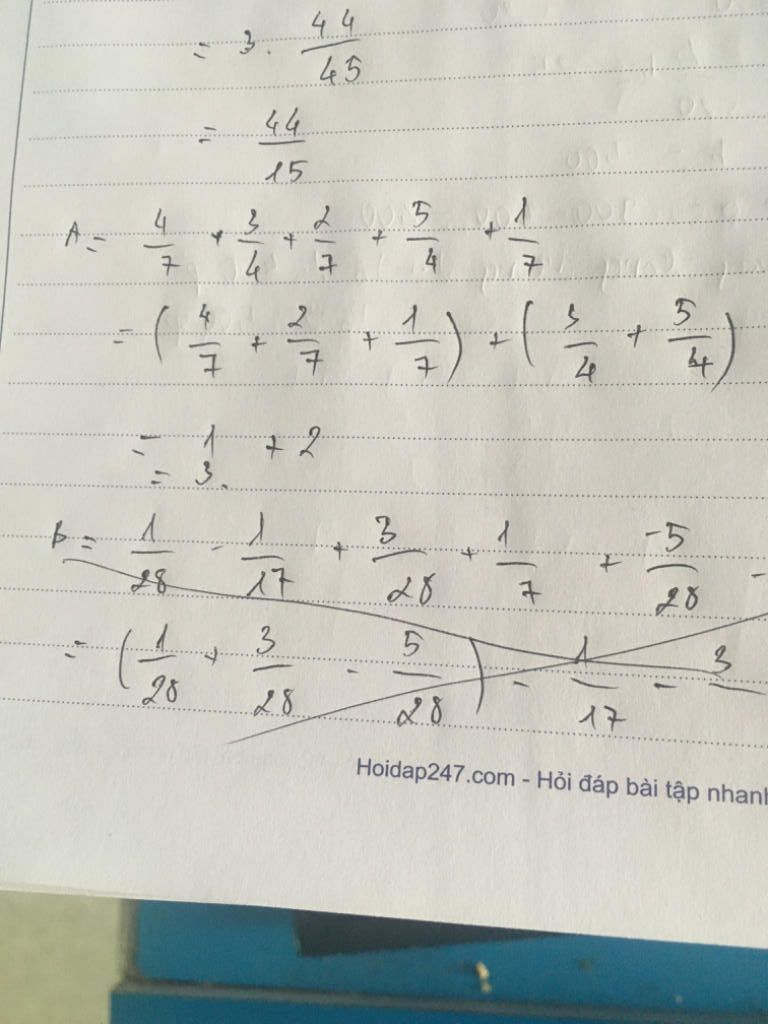 = 3. 44/45
= 44/15
A = 4/7 + 3/4 + 2/7 + 5/4 + 1/7
= (4/7 + 2/7 + 1/7) + (3/4 + 5/4)
= 1 + 2
= 3.
B = 1/28 - 1/17 + 3/28 + 1/7 + -5/28 -
= (1/28 + 3/28 - 5/28) - 1/17 - 3/
Hoidap247.com - Hỏi đáp bài tập nhanh